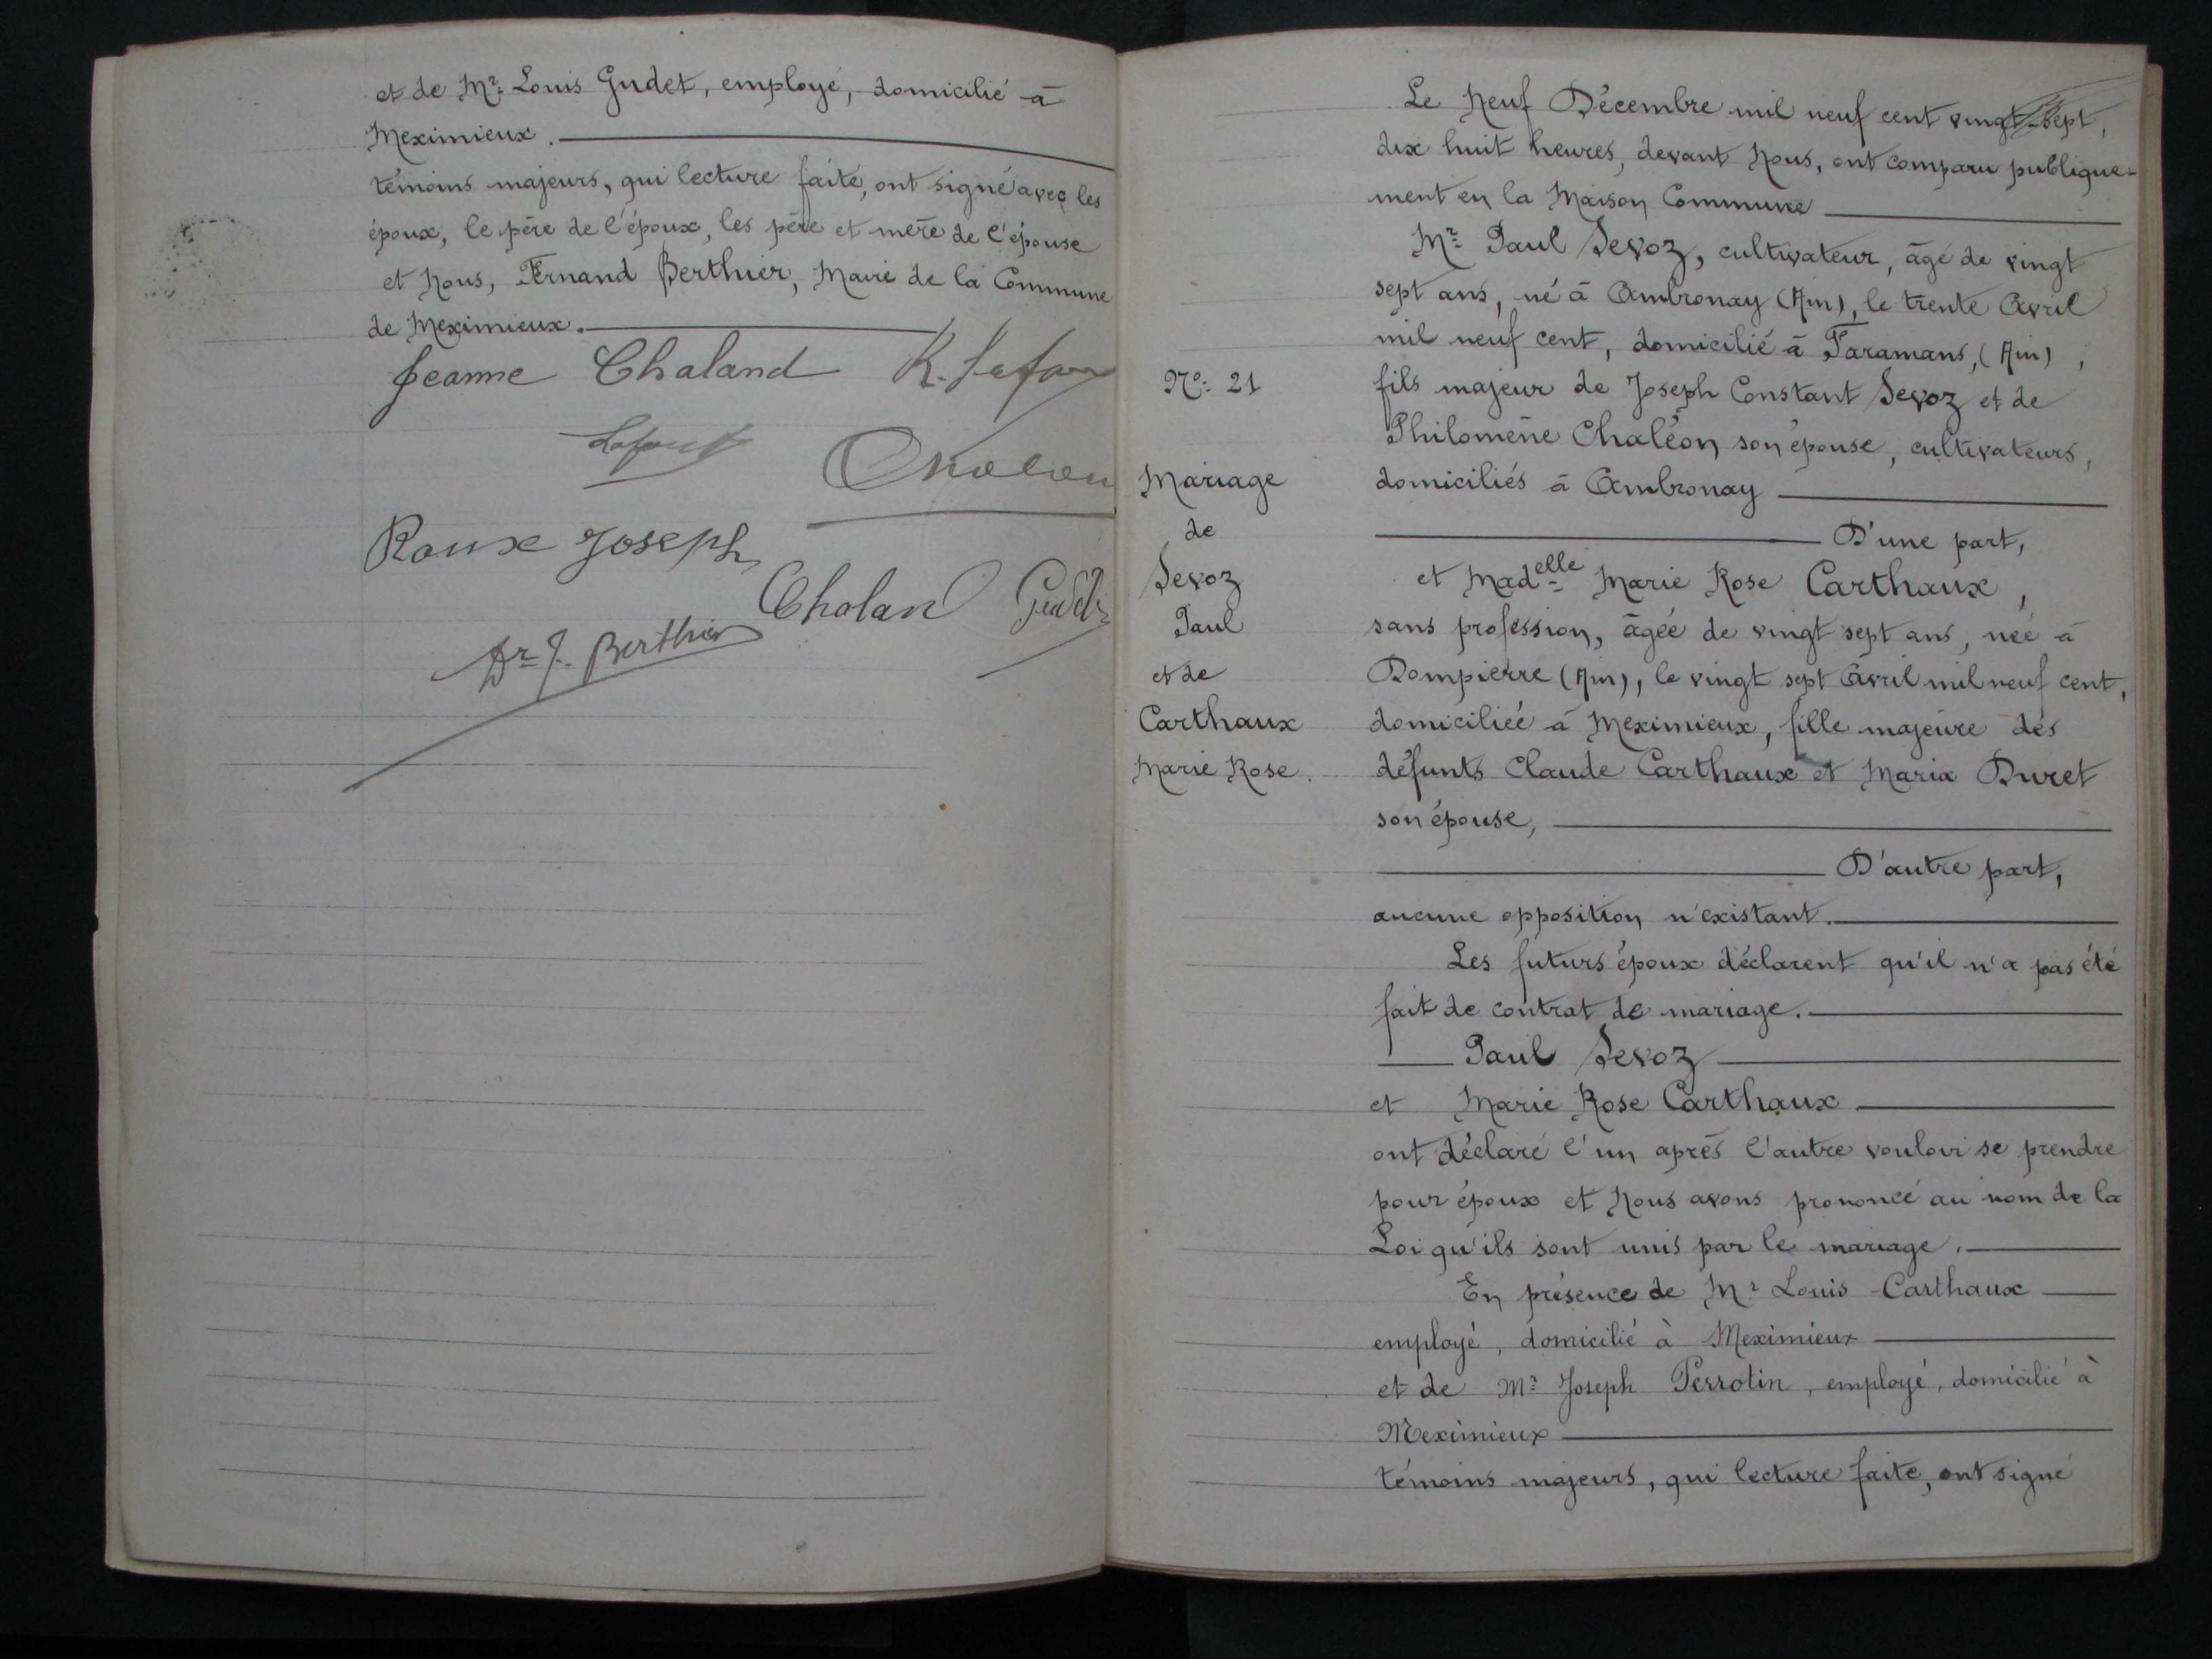 et de Mr: Louis Gudet, employé, domicilié à
Meximieux.
témoins majeurs, qui lecture faite, ont signé avec les
époux, le père de l'époux, les père et mère de l'épouse
et Nous, Fernand Berthier, Maire de la Commune
de Meximieux.
Jeanne Chaland
Roux Joseph
Dr J. Berthier
Le Neuf Décembre mil neuf cent vingt-sept,
dix huit heures, devant Nous, ont comparu publique-
ment en la Maison Commune
Mr Paul Sevoz, cultivateur, âgé de vingt
sept ans, né à Ambronay (Ain), le trente Avril
mil neuf cent, domicilié à Faramans, (Ain),
fils majeur de Joseph Constant Sevoz et de
Philomène Chaléon son épouse, cultivateurs,
domiciliés à Ambronay
D'une part,
et Madelle Marie Rose Carthaux,
sans profession, âgée de vingt sept ans, née à
Dompierre (Ain), le vingt sept Avril mil neuf cent,
domiciliée à Meximieux, fille majeure des
défunts Claude Carthaux et Maria Duret
son épouse,
D'autre part,
aucune opposition n'existant.
Les futurs époux déclarent qu'il n'a pas été
fait de contrat de mariage.
Paul Sevoz
et Marie Rose Carthaux
ont déclaré l'un après l'autre vouloir se prendre
pour époux et Nous avons prononcé au nom de la
Loi qu'ils sont unis par le mariage.
En présence de Mr Louis Carthaux
employé, domicilié à Meximieux
et de Mr Joseph Perrotin, employé, domicilié à
Meximieux
témoins majeurs, qui lecture faite, ont signé
No: 21
Mariage
de
Sevoz
Paul
et de
Carthaux
Marie Rose.